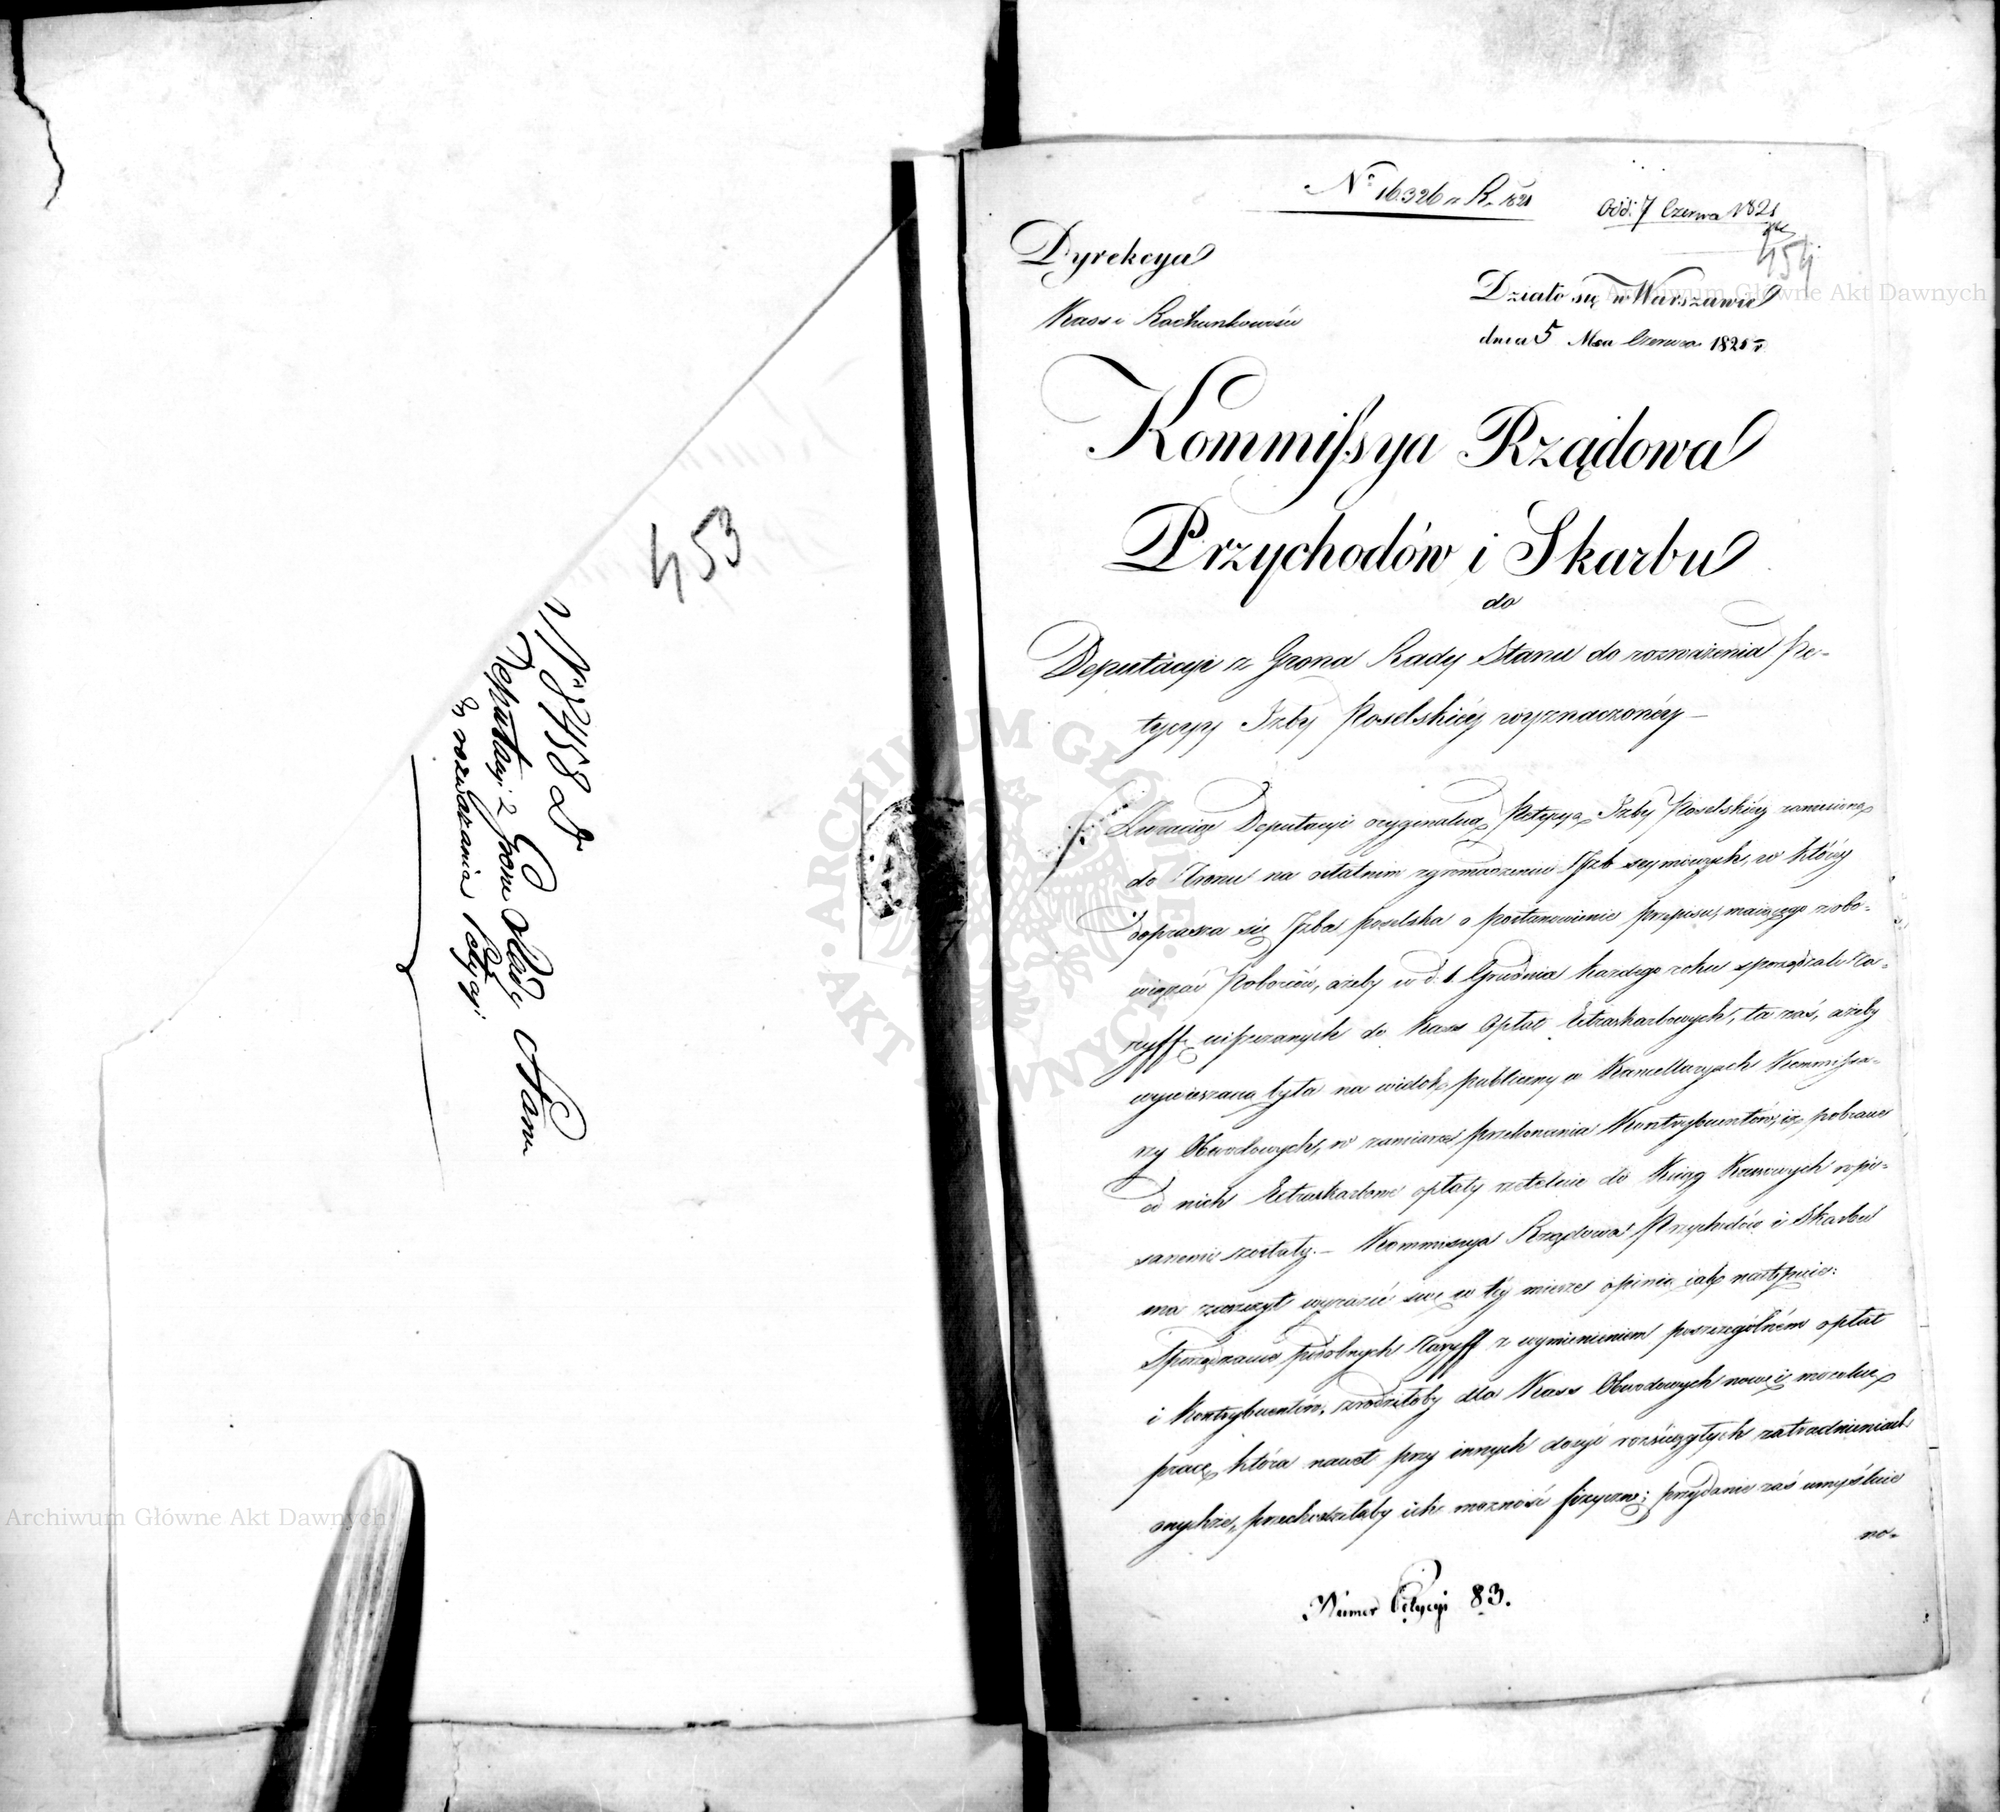 453
N° 3458 D
Deputacyi z Grona Rady Stanu
do rozważania Petycyi
N° 16.326 z R. 1821
Odd. 7 Czerwca 1821
454
Dyrekcya
Kass i Rachunkowości
Działo się w Warszawie
dnia 5 Mca Czerwca 1821 r.
Kommissya Rządowa
Przychodów i Skarbu
do
Deputacyi z Grona Rady Stanu do rozważenia Pe-
tycyy Izby Poselskiéy wyznaczonéy
Zwracaiąc Deputacyi oryginalną Petycyą Izby Poselskiéy zaniesioną
do Tronu na ostatnim zgromadzeniu Izb seymowych, w któréy
doprasza się Izba poselska o postanowienie przepisu, maiącego zobo-
wiązać Poborców, ażeby w d. 1. Grudnia każdego roku sporządzali Ta-
ryffę uiszczanych do Kass Opłat Extraskarbowych, ta zaś, ażeby
wywieszaną była na widok publiczny w Kancellaryach Kommissa-
rzy Obwodowych, w zamiarze przekonania Kontrybuentów, iż pobrane
od nich Extraskarbowe opłaty rzetelnie do Xiąg Kassowych wpi-
sanemi zostały. – Kommissya Rządowa Przychodów i Skarbu
ma zaszczyt wyrazić swą w téy mierze opinią jak następuie:
Sporządzanie podobnych Taryff z wymienieniem poszczególném opłat
i Kontrybuentów, zrodziłoby dla Kass Obwodowych nową i mozolną
pracę, która nawet przy innych dosyć rozciągłych zatrudnieniach
onychże, przechodziłaby ich możność fizyczną; przydanie zaś umyślnie
no-
Numer Petycyi 83.
Archiwum Główne Akt Dawnych
Archiwum Główne Akt Dawnych
ARCHIWUM GŁÓWNE AKT DAWNYCH